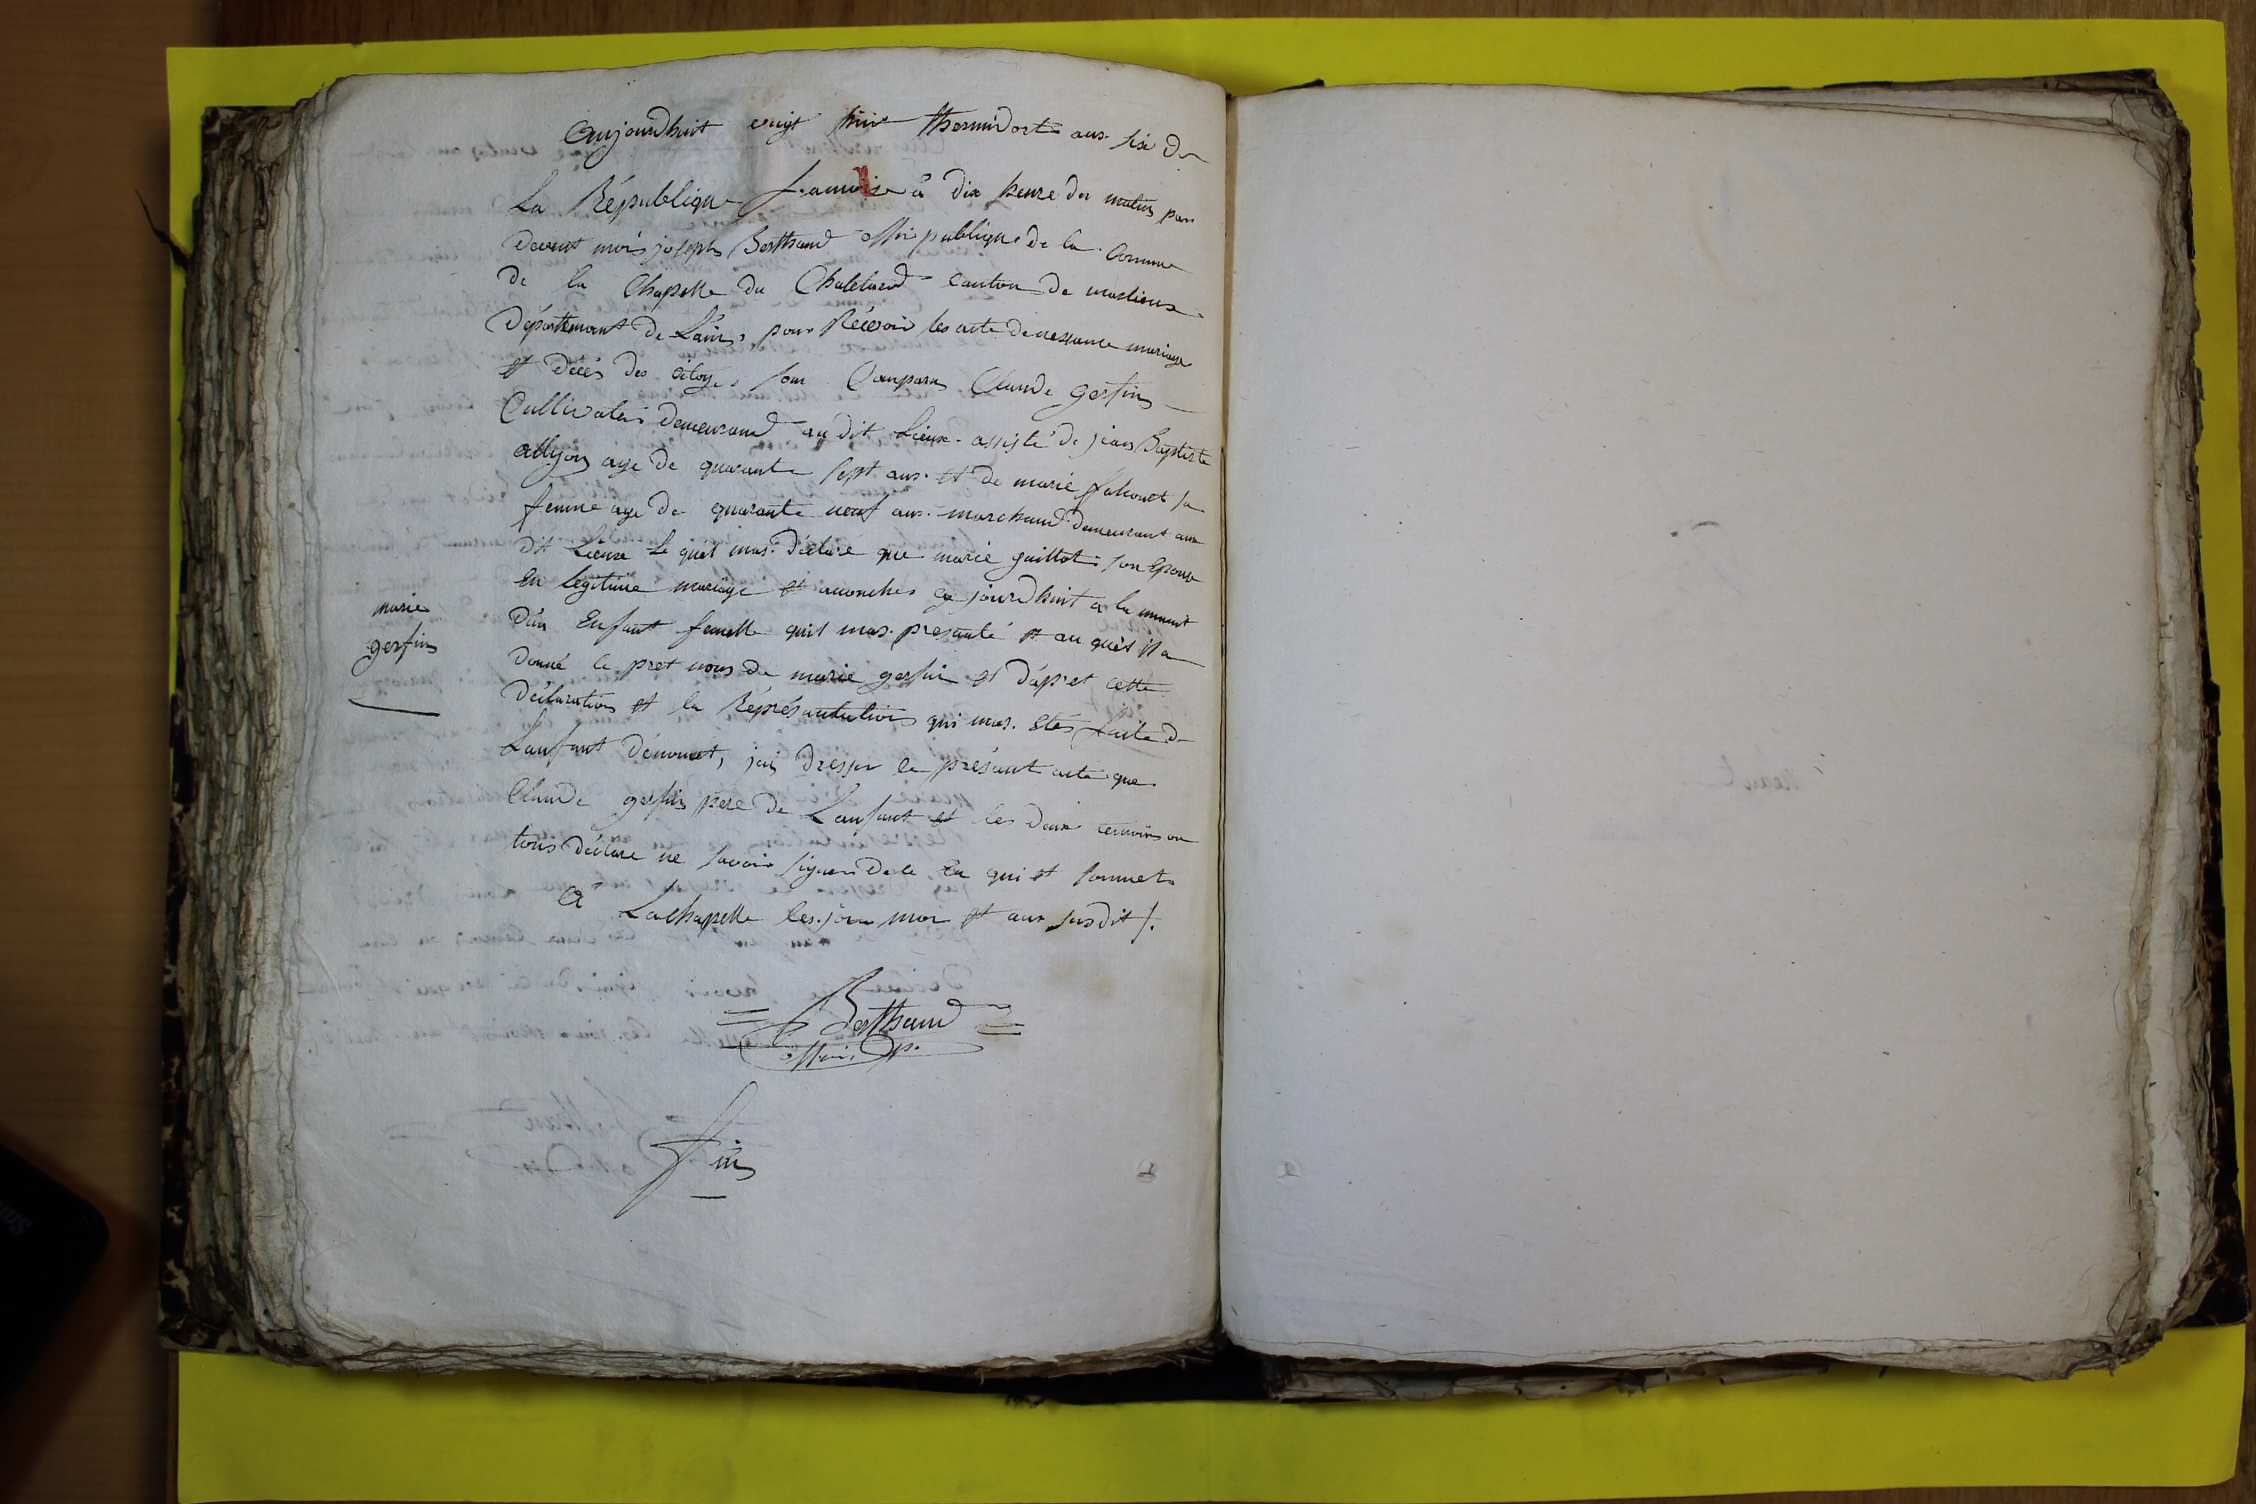 Aujourdhuit vingt huit thermidort ans six de
La République francoise à dix heure du matin par
devent moi joseph Berthaud offi publique de la Comune
de la Chapelle du Chatelard canton de marlieux
Département de Lain, pour Récevoir les acte denessance mariage
et décés des citoy. son Conparu Claude gerfin
Cultivateur demeurand au dit Lieux assisté de jean Baptiste
allyon age de quarante sept ans et de marie sa
femme age de quarante neuf ans marchand demeurant aux
dit Lieux Le quel mas déclaré que marie guillot son Epouse
En Legitime mariage et accouches ce jourdhuit a la
Dun Enfant femelle quil mas presanté et au quel il a
Donné le pret nons de marie gerfin et dapret cette
Déclaration et la Réprésantation qui mas étés faite de
Lanfant dénomet, jai dresser le présant acte que
Claude gerfin pere de Lanfant et les deux temoins on
tous déclare ne savoir signer dece En qui et sommet
A Lachapelle les jour moi et ans susdit /.
marie
gerfin
Berthaud
offi p.
fin